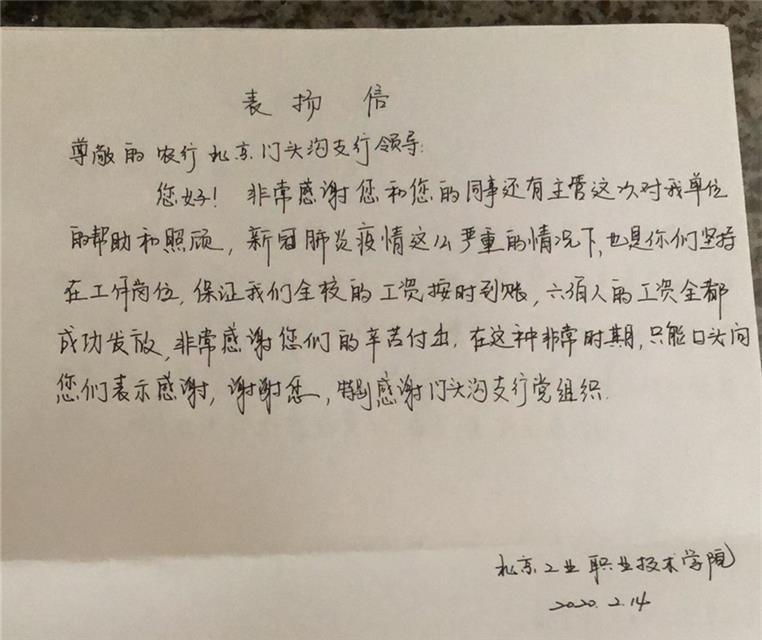 表扬信
尊敬的农行北京门头沟支行领导:
您好！非常感谢您和您的同事还有主管这次对我单位
的帮助和照顾，新冠肺炎疫情这么严重的情况下,也是你们坚持
在工作岗位,保证我们全校的工资按时到账,六佰人的工资全都
成功发放,非常感谢您们的辛苦付出.在这种非常时期,只能口头向
您们表示感谢,谢谢您,特别感谢门头沟支行党组织.
北京工业职业技术学院
2020.2.14